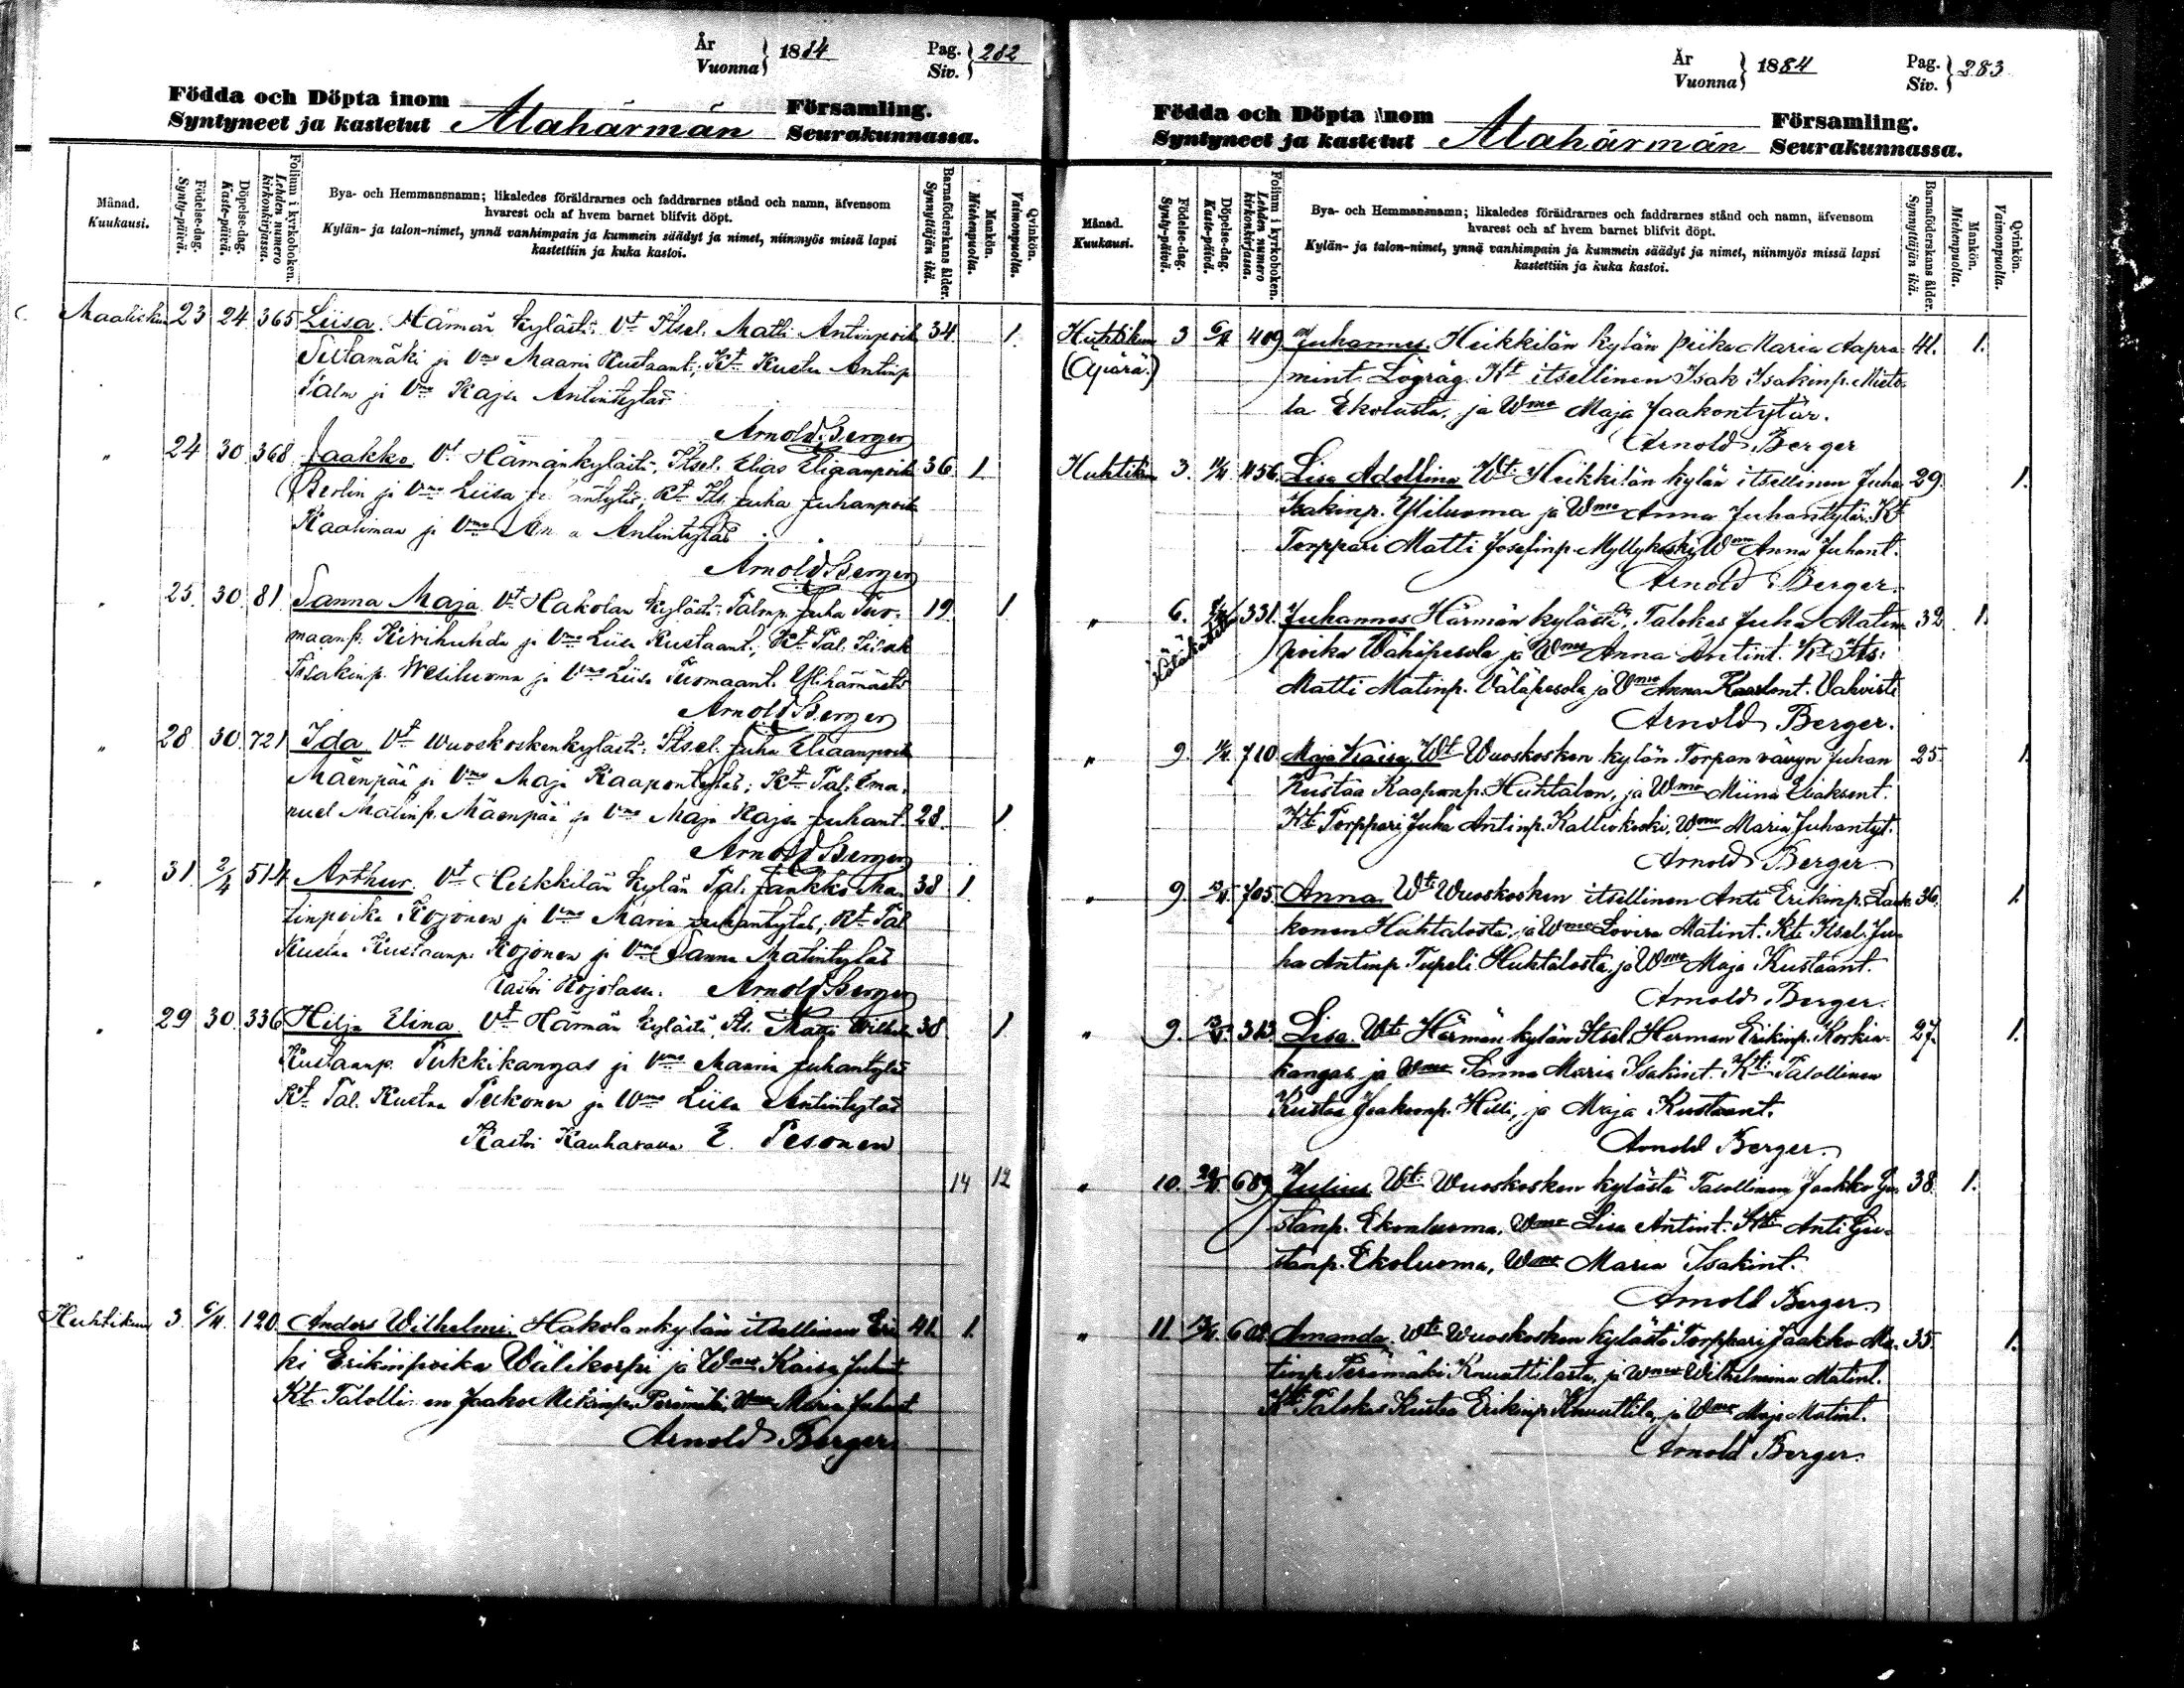 År
Vuonna } 1884 Pag.
Siv. } 282
Födda och Döpta inom
Syntyneet ja kastetut Alahärmän Församling.
Seurakunnassa.
Månad.
Kuukausi.
Födelse-dag.
Synty-päivä.
Döpelse-dag.
Kaste-päivä.
Folium i kyrkoboken.
Lehden numero
kirkonkirjassa.
Bya- och Hemmansnamn; likaledes föräldrarnes och faddrarnes stånd och namn, äfvensom
hvarest och af hvem barnet blifvit döpt.
Kylän- ja talon-nimet, ynnä vanhimpain ja kummein säädyt ja nimet, niinmyös missä lapsi
kastettiin ja kuka kastoi.
Barnaföderskans ålder.
Synnyttäjän ikä.
Mankön.
Miehenpuolta.
Qvinkön.
Vaimonpuolta.
23 24 365 Liisa. Härmän kylästä. Vt Itsel. Matti Antinpoik 34. 1.
ja Vmo Maaria Kustaant.; Kt Kustaa Antinp
ja Vmo Kajsa Antintytär
Arnold Berger
" 24 30 368 Jaakko Vt Härmänkylästä, Itsel. Elias Eliaanpoik 36. 1
Berlin ja Vmo Liisa Kt Its. Juha Juhanpoik
ja Vmo Antintytär
Arnold Berger
" 25. 30. 81. Sanna Maja. Vt Hakolan kylästä, Talonp. Juha Tuo- 19. 1
maanp. Kivihuhda ja Vmo Liisa Kustaant.; Kt Tal. Iisak
Iisakinp. Wesiluoma ja Vmo Liisa Tuomaant. Ylihärmästä
Arnold Berger
" 28. 30. 721 Ida Vt Wuoskoskenkylästä. Itsel. Juha Eliaanpoik
Mäenpää ja Vmo Maja Kaapontytär; Kt Tal. Ema-
nuel Matinp. Mäenpää ja Vmo Maja Kajsa Juhant. 28. 1
Arnold Berger
" 31. 2/4 514 Arthur. Vt Heikkilän kylän Tal. Jaakko Ma- 38 1.
tinpoika Kojonen ja Vmo Maria Juhantytär; Kt Tal
Kustaa Kustaanp. Kojonen ja Vmo Sanna Matintytär
Arnold Berger
" 29 30. 336 Hilja Elina. Vt Härmän kylästä, Its. Matti 38. 1
Kustaanp. Pukkikangas ja Vmo Maaria Juhantytär
Kt Tal. Kustaa ja Vmo Liisa Antintytär
Kastoi Kauhavan E. Pesonen
14 12
Huhtikuu 3. 6/4. 120. Anders Wilhelmi. Hakolankylän itsellinen Eri 41. 1.
ki Erikinpoika Wälikorpi ja Wmo Kaisa Juhant
Kt. Talolli en Jaako Perämäki, Wmo Maria Juhant
Arnold Berger
År
Vuonna } 1884 Pag.
Siv. } 283
Födda och Döpta inom
Syntyneet ja kastetut Alahärmän Församling.
Seurakunnassa.
Månad.
Kuukausi.
Födelse-dag.
Synty-päivä.
Döpelse-dag.
Kaste-päivä.
Folium i kyrkoboken.
Lehden numero
kirkonkirjassa.
Bya- och Hemmansnamn; likaledes föräldrarnes och faddrarnes stånd och namn, äfvensom
hvarest och af hvem barnet blifvit döpt.
Kylän- ja talon-nimet, ynnä vanhimpain ja kummein säädyt ja nimet, niinmyös missä lapsi
kastettiin ja kuka kastoi.
Barnaföderskans ålder.
Synnyttäjän ikä.
Mankön.
Miehenpuolta.
Qvinkön.
Vaimonpuolta.
Huhtikuu 3 6/4 409 Juhannes. Heikkilän kylän piika Maria Aapra- 41. 1.
(Äpärä.) mint. Lögräg. Kt itsellinen Isak Isakinp. Mieto-
la Ekolasta, ja Wmo Maja Jaakontytär.
Arnold Berger
Huhtikuu 3. 456. Lisa Adolfina Wt. Heikkilän kylän itsellinen Juha 29. 1.
Isakinp. Yliluoma ja Wmo Anna Juhantytär. Kt
Torppari Matti Josefinp. Myllykoski, Wmo Anna Juhant.
Arnold Berger.
" 6. 331. Juhannes Härmän kylästä, Talokas Juha Matin- 32. 1.
poika Wähäpesola ja Wmo Anna Antint. Kt. Its:
Matti Matinp. Väläpesola ja Vmo Anna Vahvisti
Arnold Berger.
" 9. 710. Maja Kaisa. Wt Wuoskosken kylän Torpan vävyn Juhan 25. 1.
Kustaa Kaaponp. Huhtalon, ja Wmo Miina Eliaksent.
Kt Torppari Juha Antinp. Kalliokoski, Wmo Maria Juhantyt.
Arnold Berger
" 9. 705. Anna. Wt. Wuoskosken itsellinen Anti Erikinp. Laak- 36. 1.
konen Huhtalosta, ja Wmo Lovisa Matint. Kt. Itsel. Ju-
ha Antinp. Tupeli Huhtalasta, ja Wmo Maja Kustaant.
Arnold Berger.
" 9. 313. Lisa. Wt. Härmän kylän Itsel. Herman Erikinp. Korkia- 27. 1.
kangas ja Wmo Sanna Maria Isakint. Kt: Talollinen
Kustaa Jaakonp. Hilli, ja Maja Kustaant.
Arnold Berger.
" 10. 689 Julius Wt. Wuoskosken kylästä Talollinen Jaakko Gu- 38. 1.
stanp. Ekoluoma, Wmo Lisa Antint. Kt: Anti Gu-
stanp. Ekoluoma, Wmo Maria Isakint.
Arnold Berger.
" 11. 602 Amanda. Wt. Wuoskosken kylästä Torppari Jaakko Ma- 35. 1.
tinp. Perämäki Knuuttilasta, ja Wmo Wilhelmina Matint.
Kt: Talokas Kustaa Erikinp. Knuuttila, ja Wmo Maja Matint.
Arnold Berger.